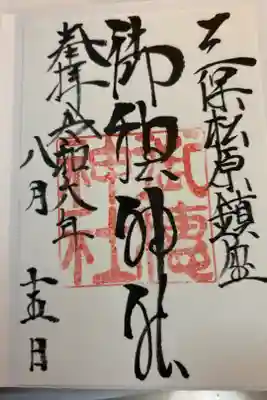 三保松原鎮座
御穂神社
奉拝 令和六年
八月
十五日